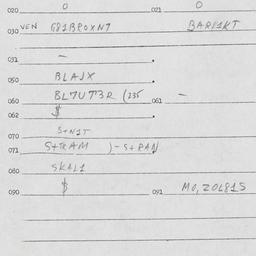 020 0 021 0
030 VEN G81BROXNT BAR1KT
031 -
050 BLAJX
060 BL7UT3R (235 061 -
062 $
070 S+N1T
071 S+RAM )-S+PAN
080 SKAL1
090 $ 091 MO,ZOL815